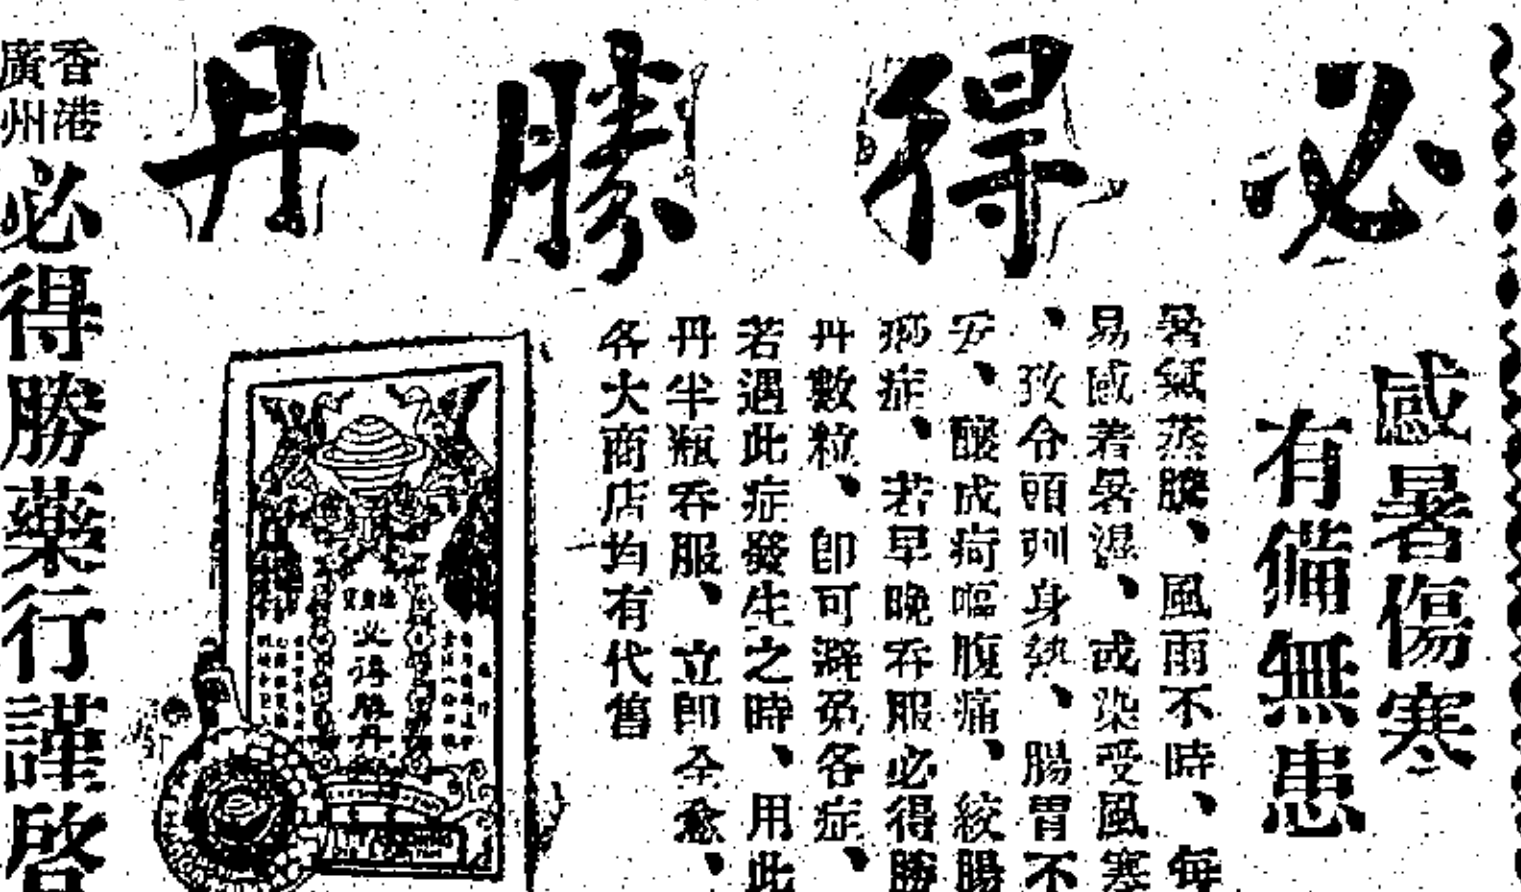 必得勝丹
感暑傷寒
有備無患
暑氣蒸騰、風雨不時、每
易感着暑濕、或染受風寒
、致令頭刺身熱、腸胃不
安、醸成痾嘔腹痛、絞腸
痧症、若早晚吞服必得勝
丹數粒、卽可避免各症、
若遇此症發生之時、用此
丹半瓶吞服、立卽全愈、
各大商店均有代售
必得勝丹
香港
廣州
必得勝藥行謹啓